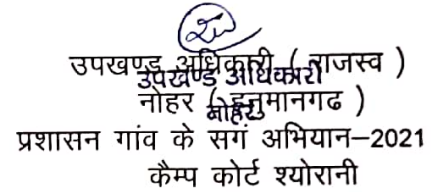 उपखण्ड अधिकारी ( राजस्व )
उपखण्ड अधिकारी
नोहर ( हनुमानगढ )
नोहर
प्रशासन गांव के सगं अभियान–2021
कैम्प कोर्ट श्योरानी